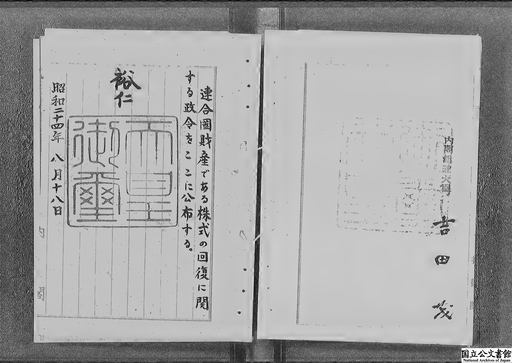 連合国財産である株式の回復に関
する政令をここに公布する。
裕仁
天皇
御璽
昭和二十四年 八月十八日
吉田茂
国立公文書館
National Archives of Japan